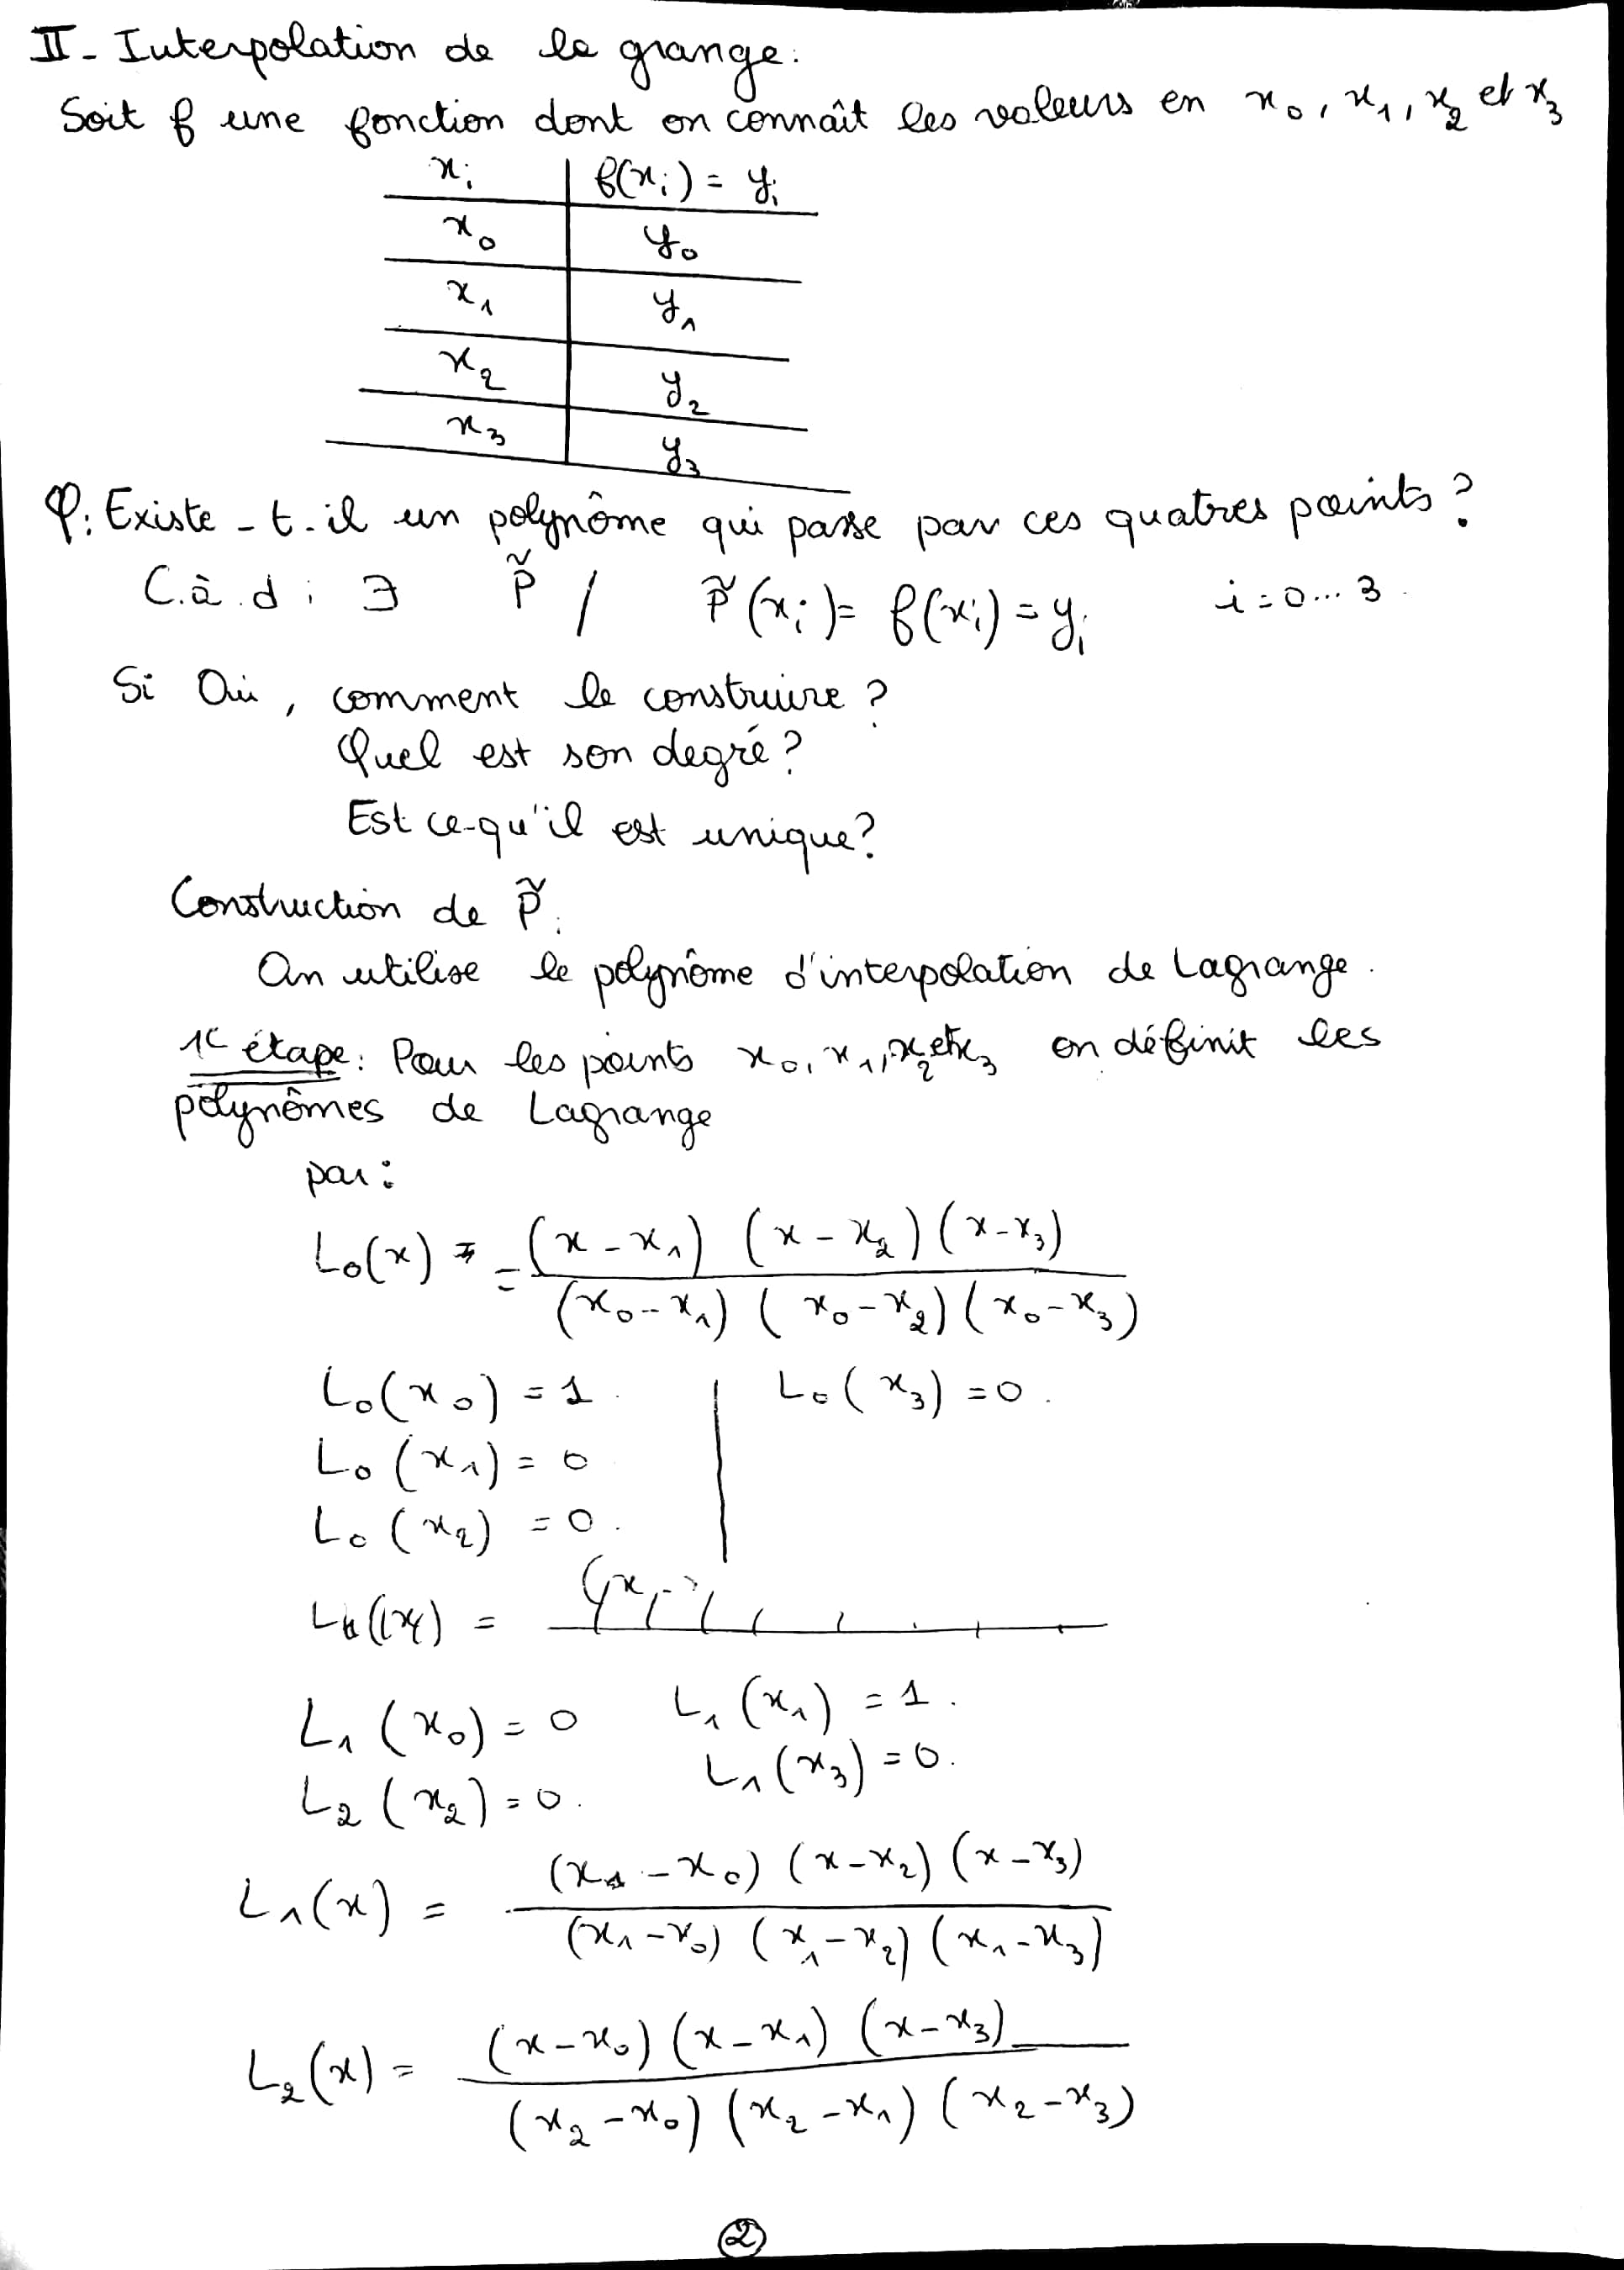 II - Interpolation de la grange:
Soit f une fonction dont on connaît les valeurs en x₀, x₁, x₂ et x₃
xᵢ | f(xᵢ) = yᵢ
x₀ | y₀
x₁ | y₁
x₂ | y₂
x₃ | y₃
Q: Existe-t-il un polynôme qui passe par ces quatres points?
C.à.d : ∃ P̃ / P̃(xᵢ) = f(xᵢ) = yᵢ i = 0...3.
Si Oui, comment le construire?
Quel est son degré?
Est ce-qu'il est unique?
Construction de P̃.
On utilise le polynôme d'interpolation de Lagrange.
1e étape: Pour les points x₀, x₁, x₂ et x₃ on définit les
polynômes de Lagrange
par:
L₀(x) = (x - x₁) (x - x₂) (x - x₃)
(x₀ - x₁) (x₀ - x₂) (x₀ - x₃)
L₀(x₀) = 1. | L₀(x₃) = 0.
L₀(x₁) = 0
L₀(x₂) = 0.
L₁(x₀) = 0 L₁(x₁) = 1.
L₂(x₂) = 0. L₁(x₃) = 0.
L₁(x) = (x - x₀) (x - x₂) (x - x₃)
(x₁ - x₀) (x₁ - x₂) (x₁ - x₃)
L₂(x) = (x - x₀) (x - x₁) (x - x₃)
(x₂ - x₀) (x₂ - x₁) (x₂ - x₃)
2